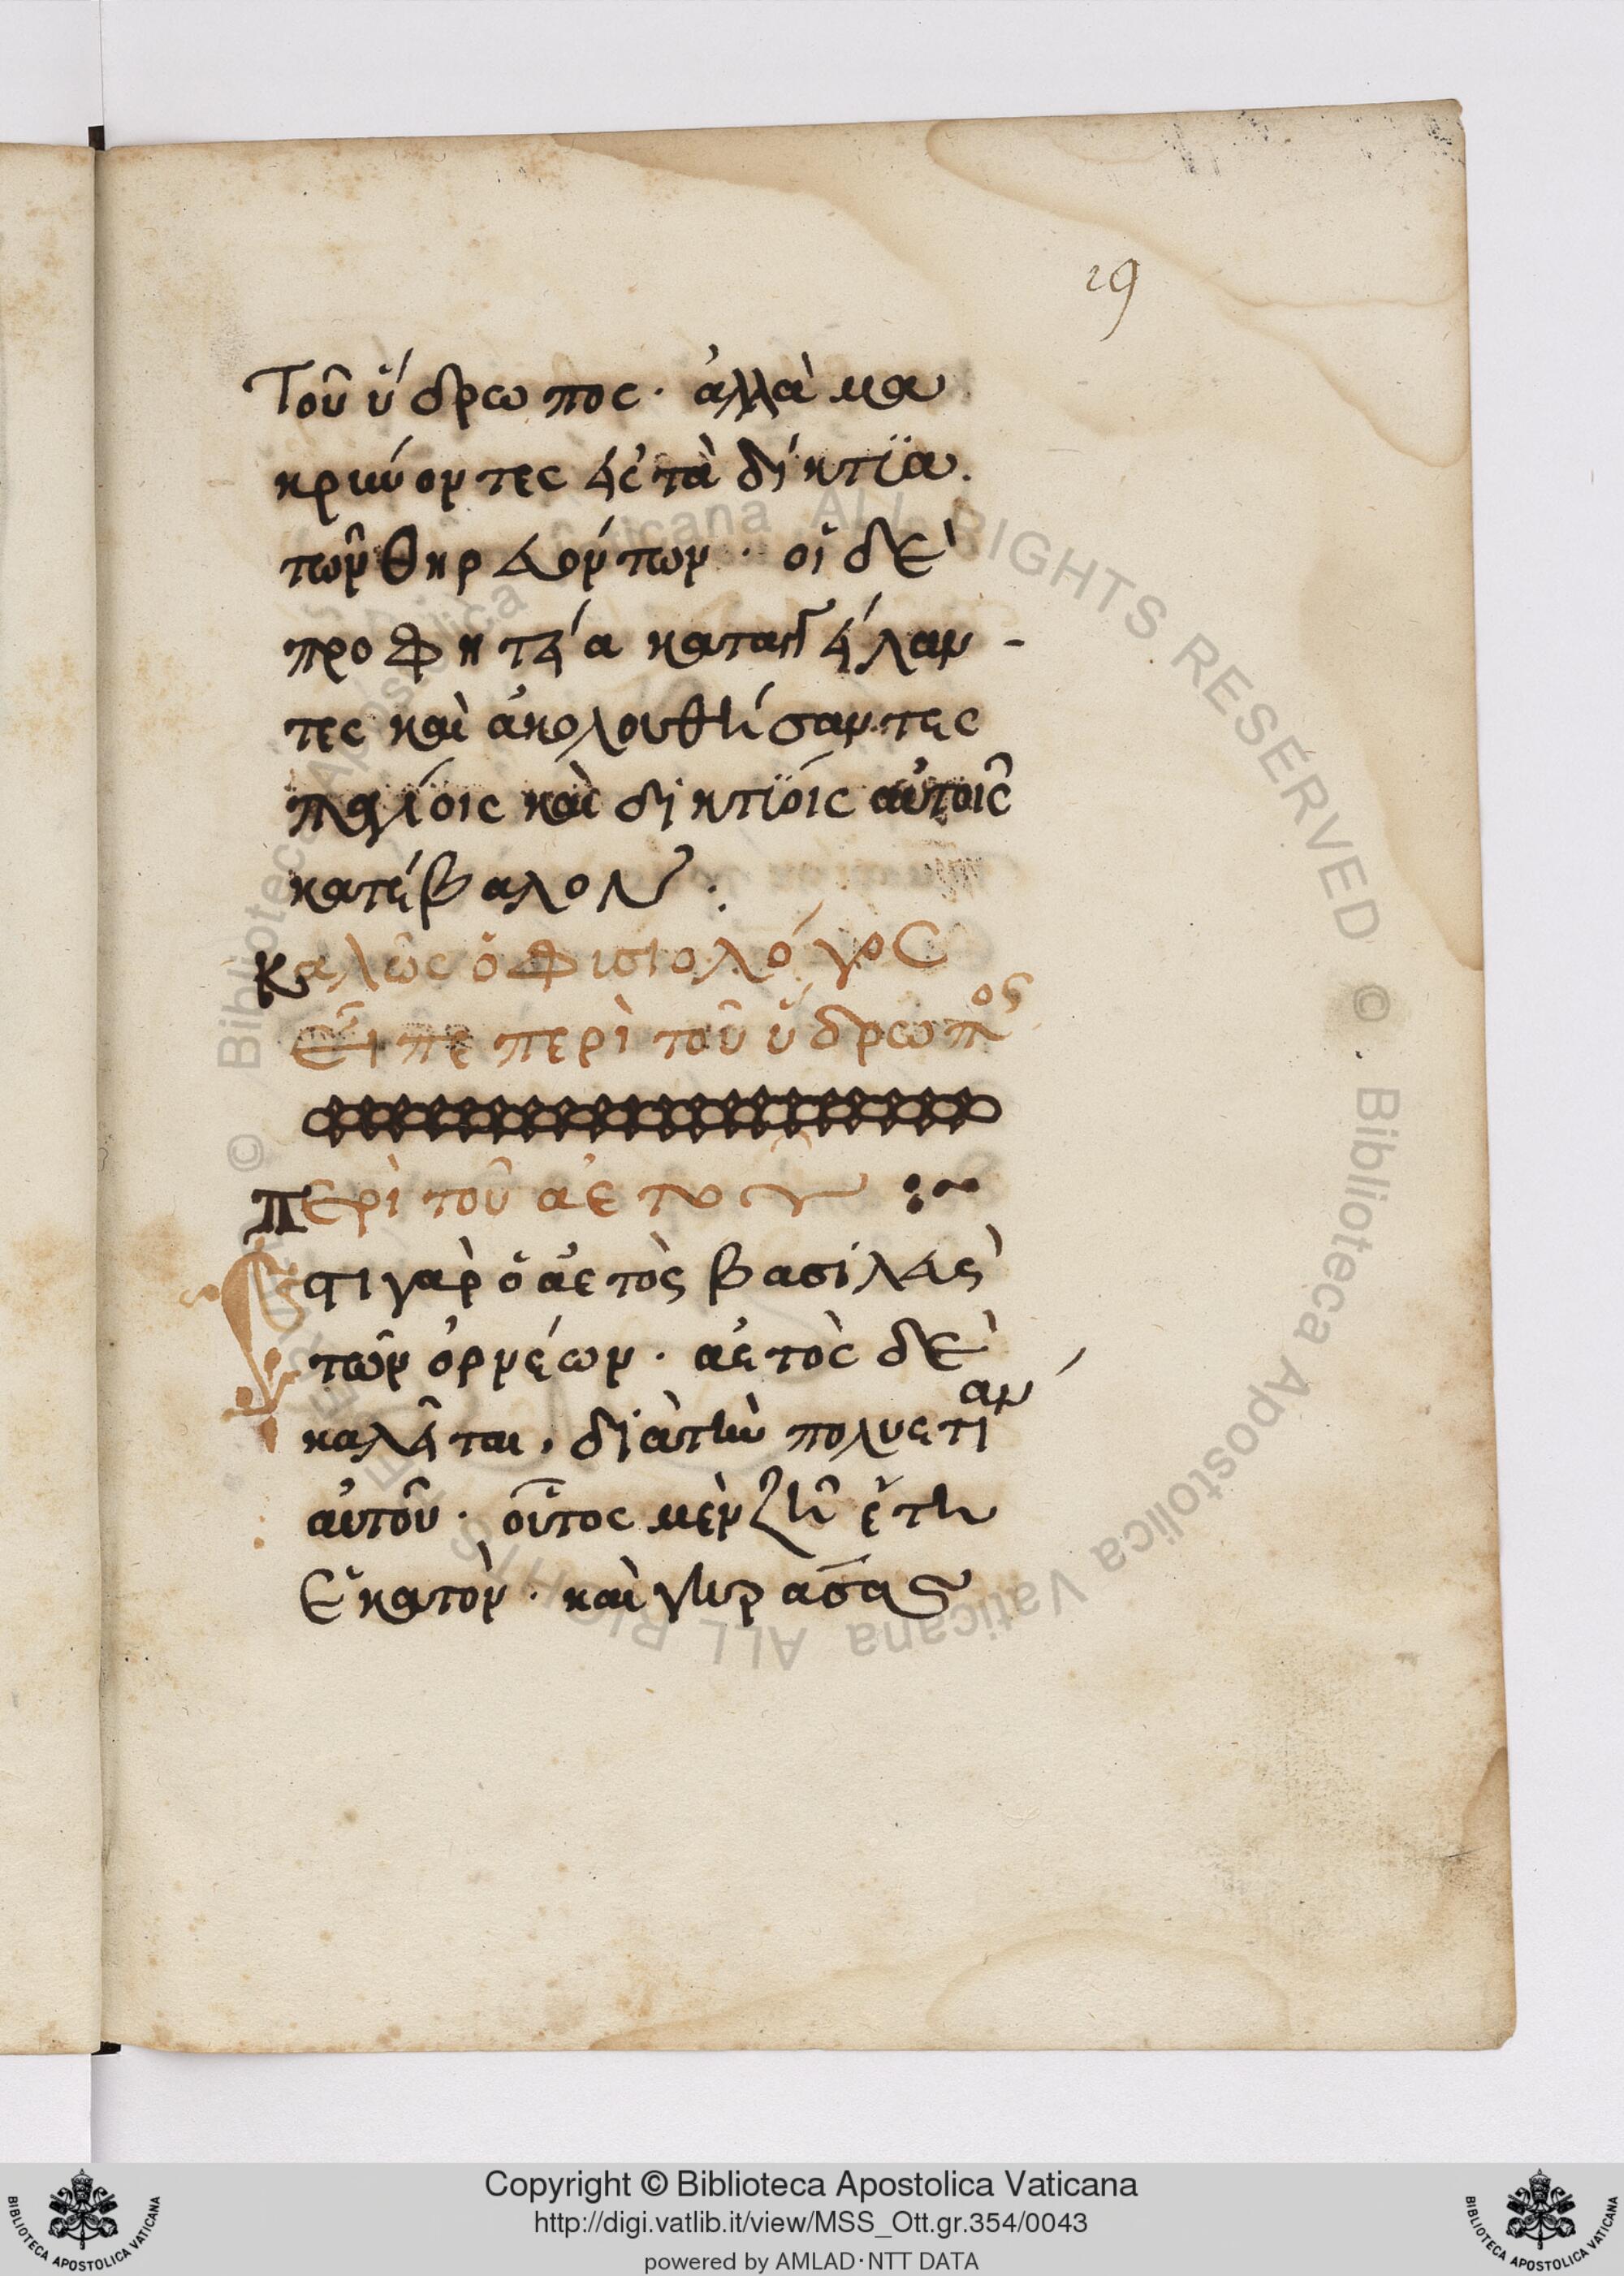 29
Τοῦ ὕδρωπος · ἀλλὰ μα
κρύνοντες εἰς τὰ δίκτϊα.
τῶν θηρευόντων · οἱ δὲ
προφητεία καταγγείλαν-
τες καὶ ἀκολουθήσαντες
παγίοις καὶ δικτϊοίς αὐτοῖς
κατέβαλον :
Καλῶς ὁ φισιολόγος
εἶπε περὶ τοῦ ὕδρωπος
Περὶ τοῦ ἀετοῦ :~
Ἔστι γὰρ ὁ ἀετὸς βασιλεὺς
τῶν ὀρνέων · ἀετὸς δὲ
καλεῖται, διὰ τὴν πολυετίαν
αὐτοῦ · οὗτος μὲν ζῆ ἔτη
ἑκατὸν · καὶ γηράσας
Copyright © Biblioteca Apostolica Vaticana
http://digi.vatlib.it/view/MSS_Ott.gr.354/0043
powered by AMLAD·NTT DATA
BIBLIOTECA APOSTOLICA VATICANA
BIBLIOTECA APOSTOLICA VATICANA
© Biblioteca Apostolica Vaticana ALL RIGHTS RESERVED
© Biblioteca Apostolica Vaticana ALL RIGHTS RESERVED